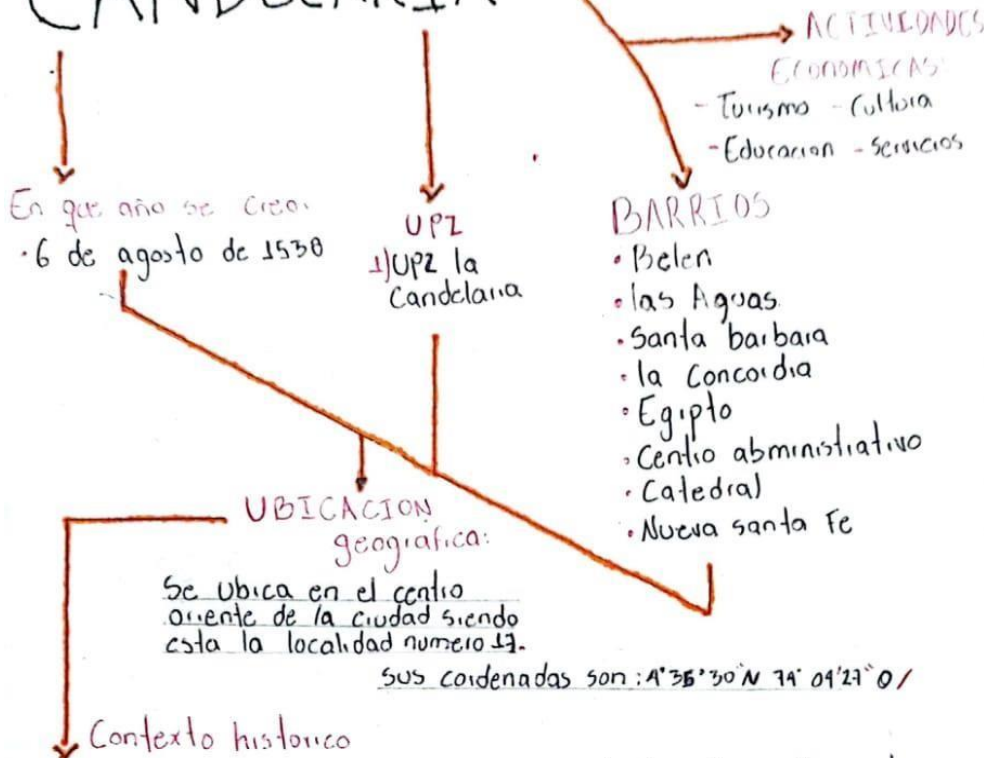 CANDELARIA
ACTIVIDADES
ECONOMICAS
- Turismo - Cultura
- Educacion - Servicios
En que año se creo.
· 6 de agosto de 1538
UPZ
1) UPZ la
Candelaria
BARRIOS
• Belen
• las Aguas
• Santa barbara
• la Concordia
• Egipto
• Centro abministrativo
• Catedral
• Nueva santa Fe
UBICACION
geografica:
Se ubica en el centro
oriente de la ciudad siendo
esta la localidad numero 17.
sus cordenadas son: 4°35'30"N 74° 04'27"O/
Contexto historico